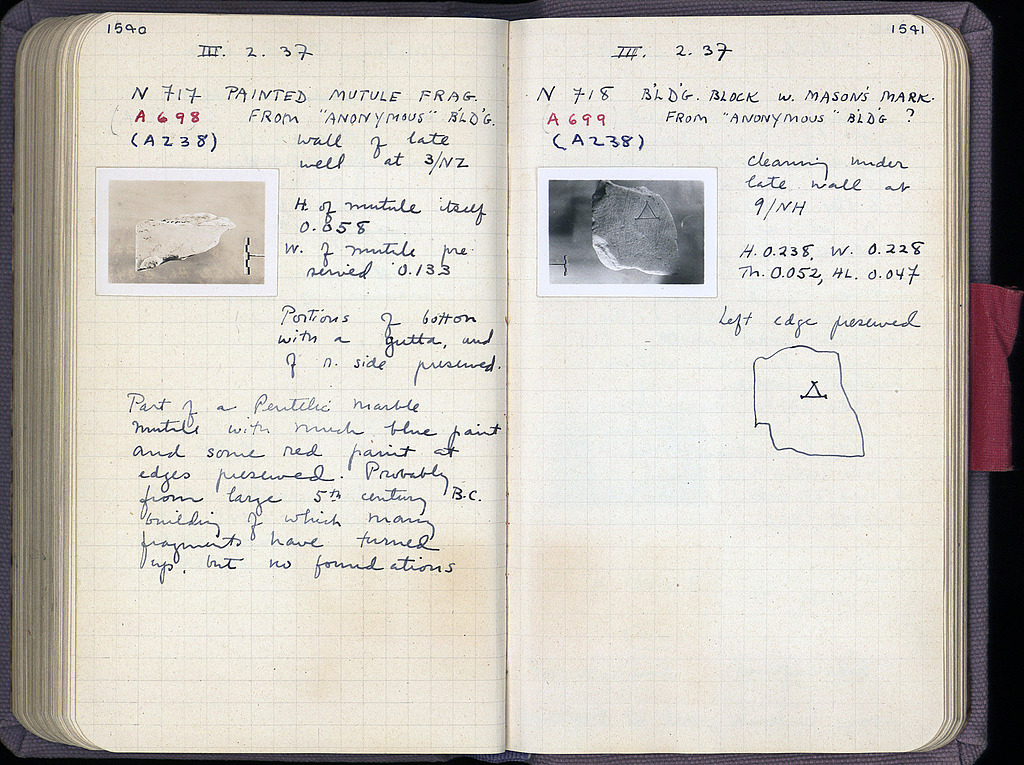 1540
III. 2. 37
N 717 PAINTED MUTULE FRAG.
A 698 FROM "ANONYMOUS" BL'D'G.
(A238) Wall of late
well at 3/NZ
H. of mutule itself
0.058
W. of mutule pre
served 0.133
Portions of bottom
with a gutta, and
of r. side preserved.
Part of a Pentelic marble
mutule with much blue paint
and some red paint at
edges preserved. Probably
from large 5th century B.C.
building of which many
fragments have turned
up, but no foundations
1541
III. 2. 37
N 718 B'LD'G. BLOCK W. MASON'S MARK.
A 699 FROM "ANONYMOUS" BLD'G ?
(A238)
Cleaning under
late wall at
9/NH
H. 0.238, W. 0.228
Th. 0.052, HL. 0.047
Left edge preserved